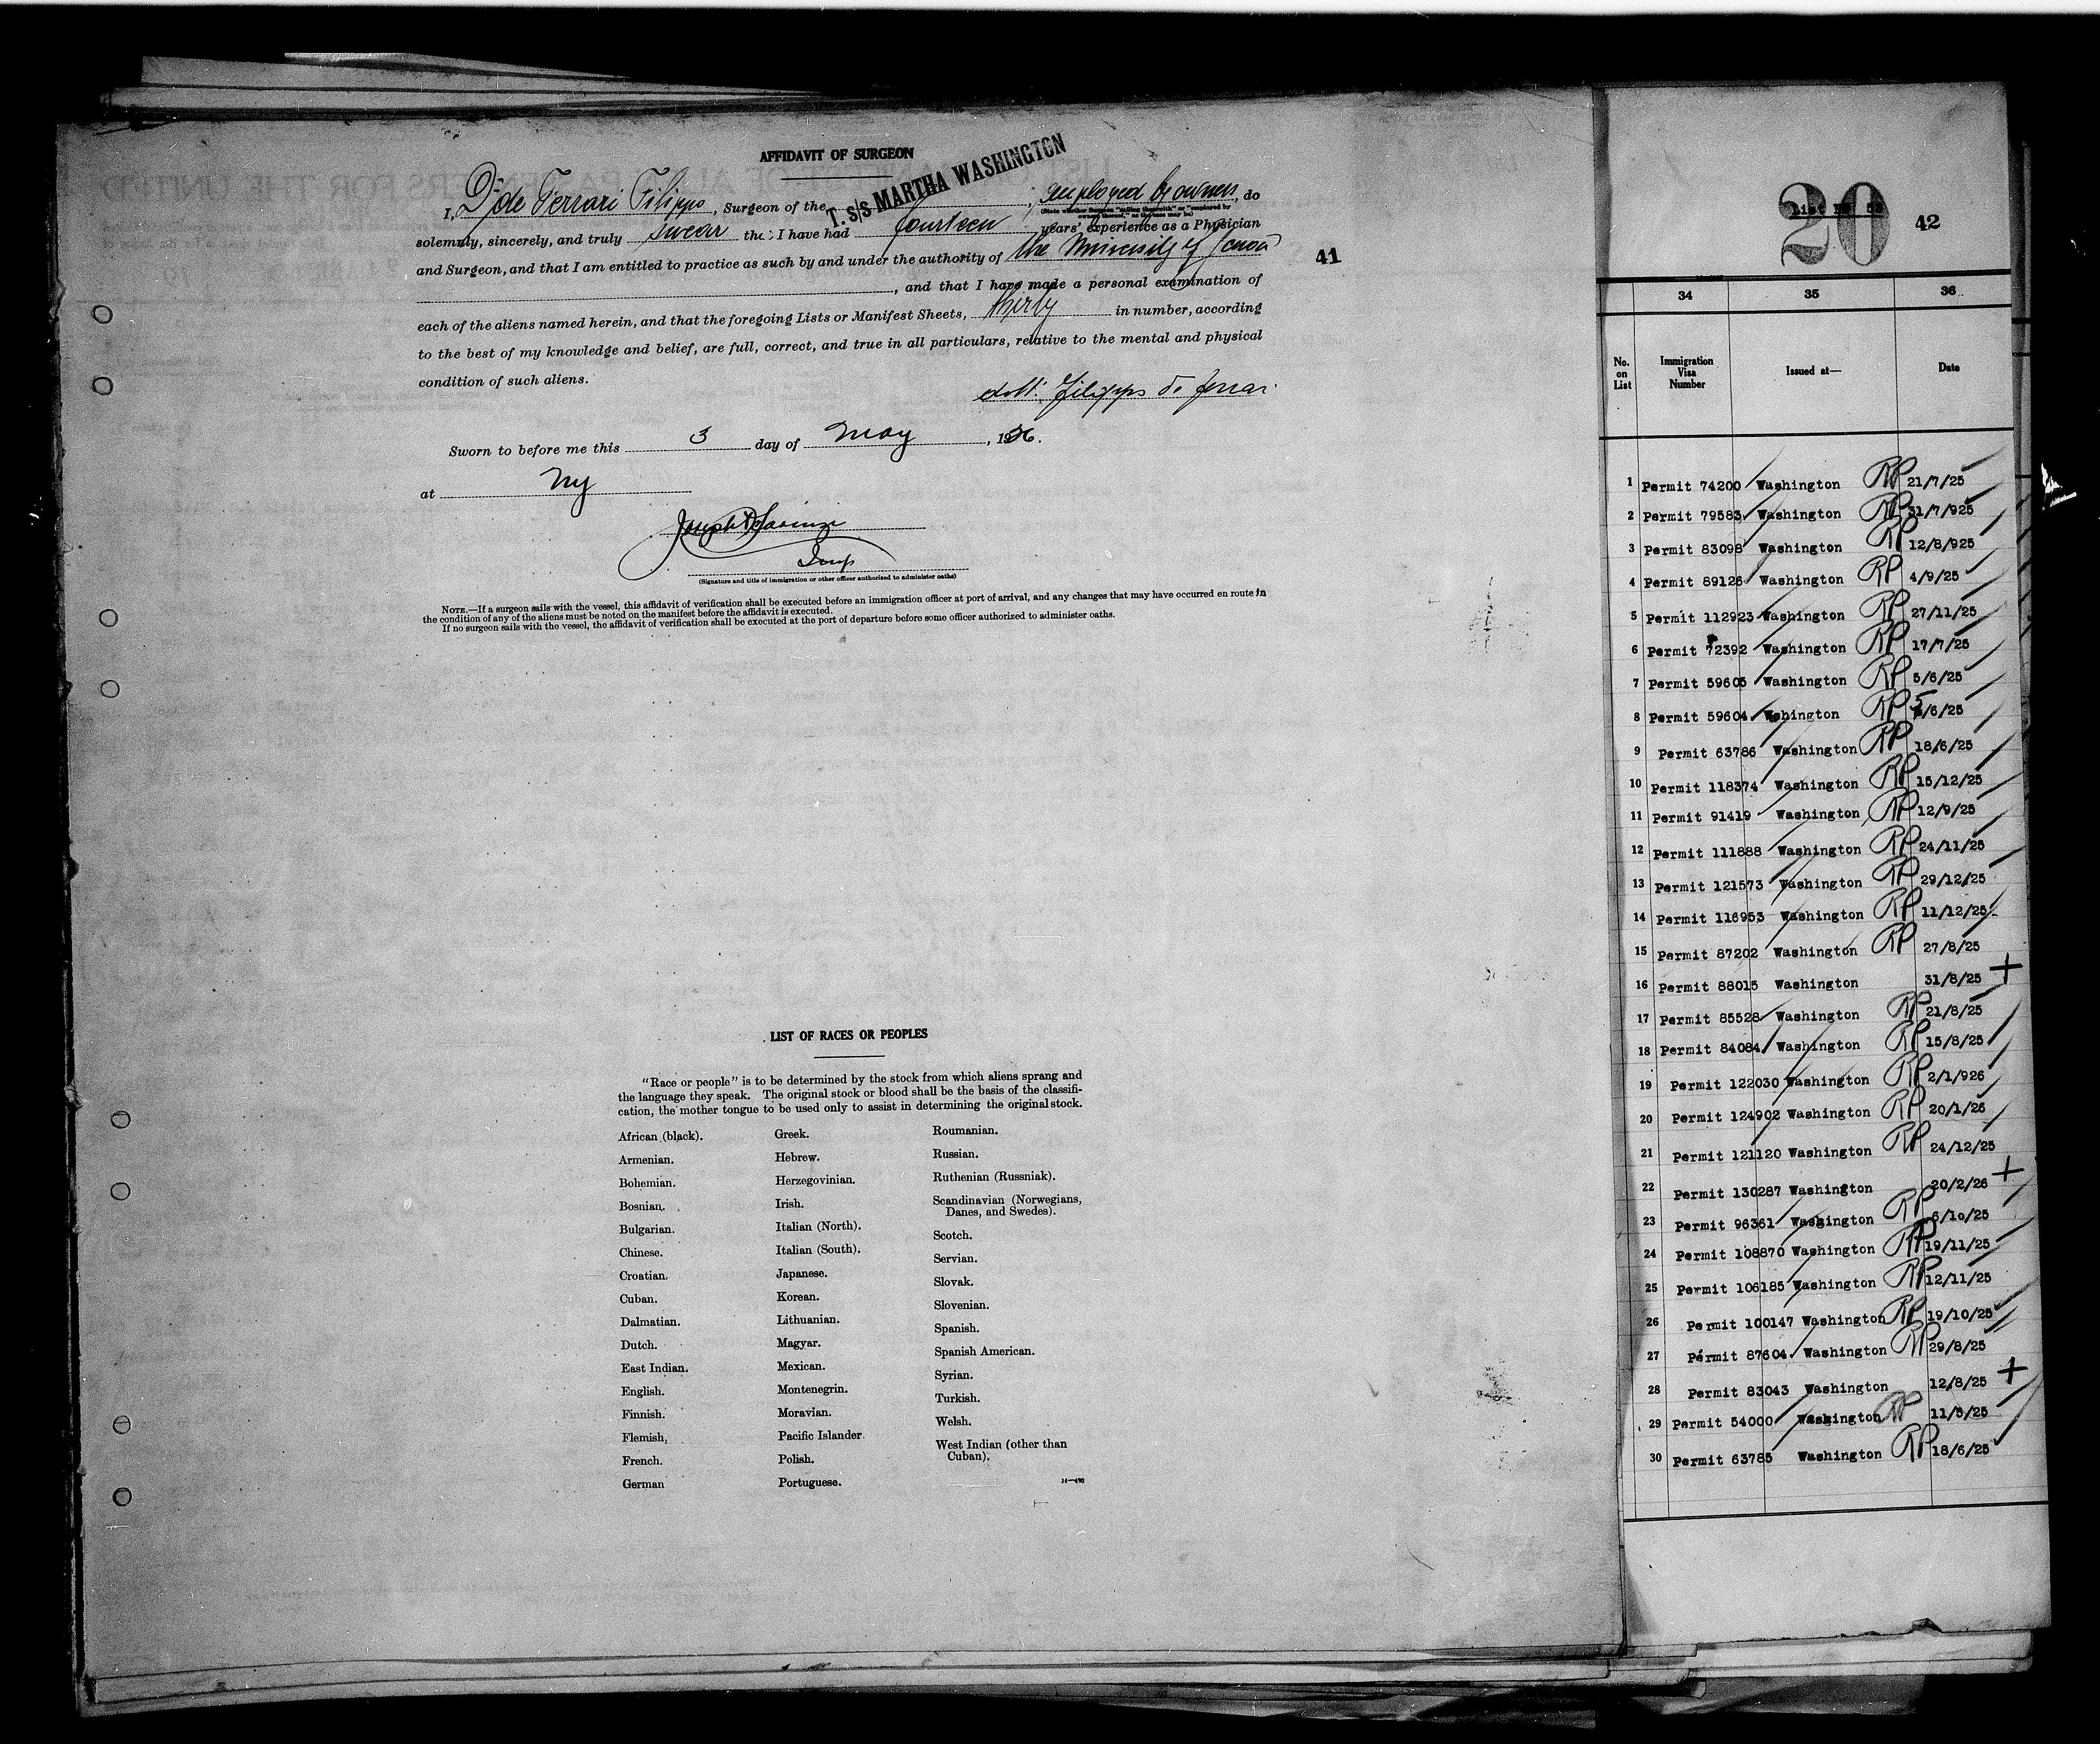 AFFIDAVIT OF SURGEON
T. S/S MARTHA WASHINGTON
I, Dr de Ferrari Filippo, Surgeon of the ; employed by owners, do
(State whether Surgeon "sailing therewith" or "employed by
owners thereof," as the case may be)
solemnly, sincerely, and truly swear that I have had fourteen years' experience as a Physician
and Surgeon, and that I am entitled to practice as such by and under the authority of the University of Genoa
, and that I have made a personal examination of
each of the aliens named herein, and that the foregoing Lists or Manifest Sheets, thirty in number, according
to the best of my knowledge and belief, are full, correct, and true in all particulars, relative to the mental and physical
condition of such aliens.
dott. Filippo de Ferrari
Sworn to before me this 3 day of May, 1926.
at NY
Joseph
Insp
(Signature and title of immigration or other officer authorized to administer oaths)
NOTE.—If a surgeon sails with the vessel, this affidavit of verification shall be executed before an immigration officer at port of arrival, and any changes that may have occurred en route in
the condition of any of the aliens must be noted on the manifest before the affidavit is executed.
If no surgeon sails with the vessel, the affidavit of verification shall be executed at the port of departure before some officer authorized to administer oaths.
41
LIST OF RACES OR PEOPLES
"Race or people" is to be determined by the stock from which aliens sprang and
the language they speak. The original stock or blood shall be the basis of the classifi-
cation, the mother tongue to be used only to assist in determining the original stock.
African (black).
Armenian.
Bohemian.
Bosnian.
Bulgarian.
Chinese.
Croatian.
Cuban.
Dalmatian.
Dutch.
East Indian.
English.
Finnish.
Flemish.
French.
German
Greek.
Hebrew.
Herzegovinian.
Irish.
Italian (North).
Italian (South).
Japanese.
Korean.
Lithuanian.
Magyar.
Mexican.
Montenegrin.
Moravian.
Pacific Islander.
Polish.
Portuguese.
Roumanian.
Russian.
Ruthenian (Russniak).
Scandinavian (Norwegians,
Danes, and Swedes).
Scotch.
Servian.
Slovak.
Slovenian.
Spanish.
Spanish American.
Syrian.
Turkish.
Welsh.
West Indian (other than
Cuban).
20
42
34 35 36
No. on List Immigration Visa Number Issued at— Date
1 Permit 74200 Washington RP 21/7/25
2 Permit 79583 Washington RP 31/7/925
3 Permit 83098 Washington RP 12/8/925
4 Permit 89126 Washington RP 4/9/25
5 Permit 112923 Washington RP 27/11/25
6 Permit 72392 Washington RP 17/7/25
7 Permit 59605 Washington RP 5/6/25
8 Permit 59604 Wshington RP 5/6/25
9 Permit 63786 Washington RP 18/6/25
10 Permit 118374 Washington RP 15/12/25
11 Permit 91419 Washington RP 12/9/25
12 Permit 111888 Washington RP 24/11/25
13 Permit 121573 Washington RP 29/12/25
14 Permit 116953 Washington RP 11/12/25
15 Permit 87202 Washington RP 27/8/25
16 Permit 88015 Washington 31/8/25 +
17 Permit 85528 Washington RP 21/8/25
18 Permit 84084 Washington RP 15/8/25
19 Permit 122030 Washington RP 2/1/926
20 Permit 124902 Washington RP 20/1/26
21 Permit 121120 Washington RP 24/12/25
22 Permit 130287 Washington 20/2/26 +
23 Permit 96361 Washington RP 6/10/25
24 Permit 108870 Washington RP 19/11/25
25 Permit 106185 Washington RP 12/11/25
26 Permit 100147 Washington RP 19/10/25
27 Permit 87604 Washington RP 29/8/25
28 Permit 83043 Washington 12/8/25 +
29 Permit 54000 Washington RP 11/5/25
30 Permit 63785 Washington RP 18/6/25